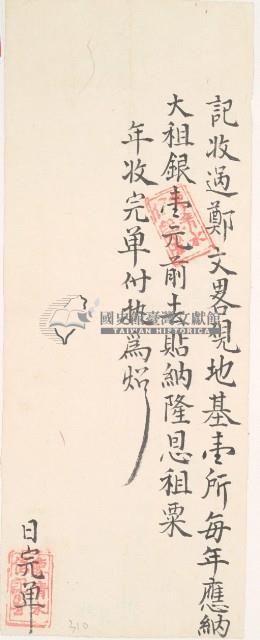 記收過鄭文畧現地基壹所每年應納
大祖銀壹元前去貼納隆恩祖粟
年收完单付执為炤
日完單
國史館臺灣文獻館
TAIWAN HISTORICA
310